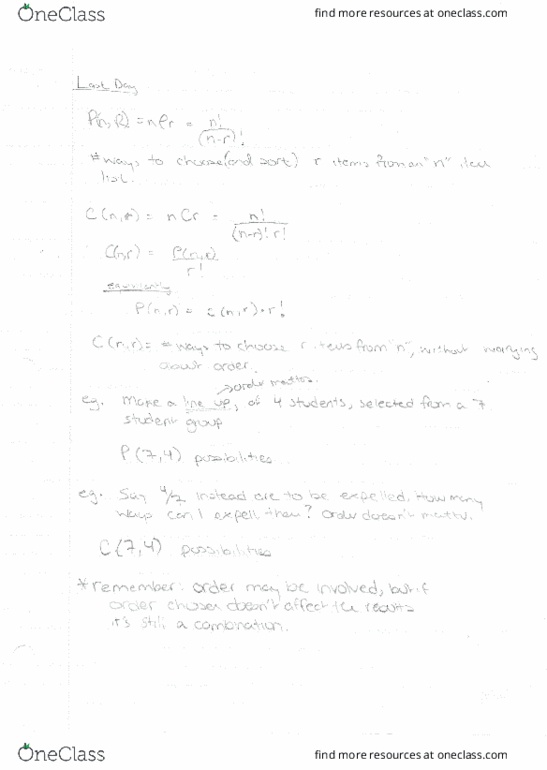 OneClass find more resources at oneclass.com
Last Day
P(n,r) = nPr = n!/(n-r)!
# ways to choose (and sort) r items from an "n" item
list.
C(n,r) = nCr = n!/(n-r)! r!
C(n,r) = P(n,r)/r!
equivalently
P(n,r) = C(n,r) · r!
C(n,r) = # ways to choose r items from "n", without worrying
about order.
→ order matters.
eg. Make a line up, of 4 students, selected from a 7
student group
P(7,4) possibilities
eg. Say 4/7 instead are to be expelled. How many
ways can I expell them? Order doesn't matter.
C(7,4) possibilities
*remember: order may be involved, but if
order chosen doesn't affect the results
it's still a combination.
OneClass find more resources at oneclass.com